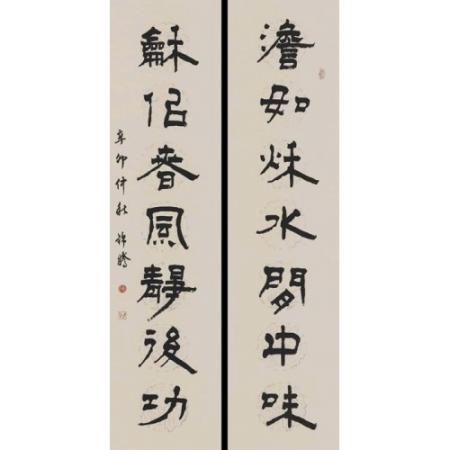 澹如秋水閒中味
龢佀春風靜後功
辛卯仲秋